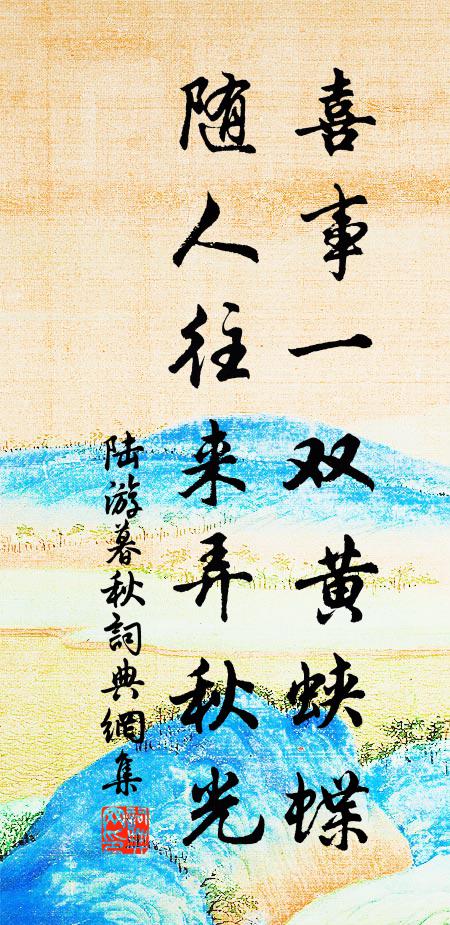 喜事一双黄蛱蝶
随人往来弄秋光
陆游暮秋詞典網集